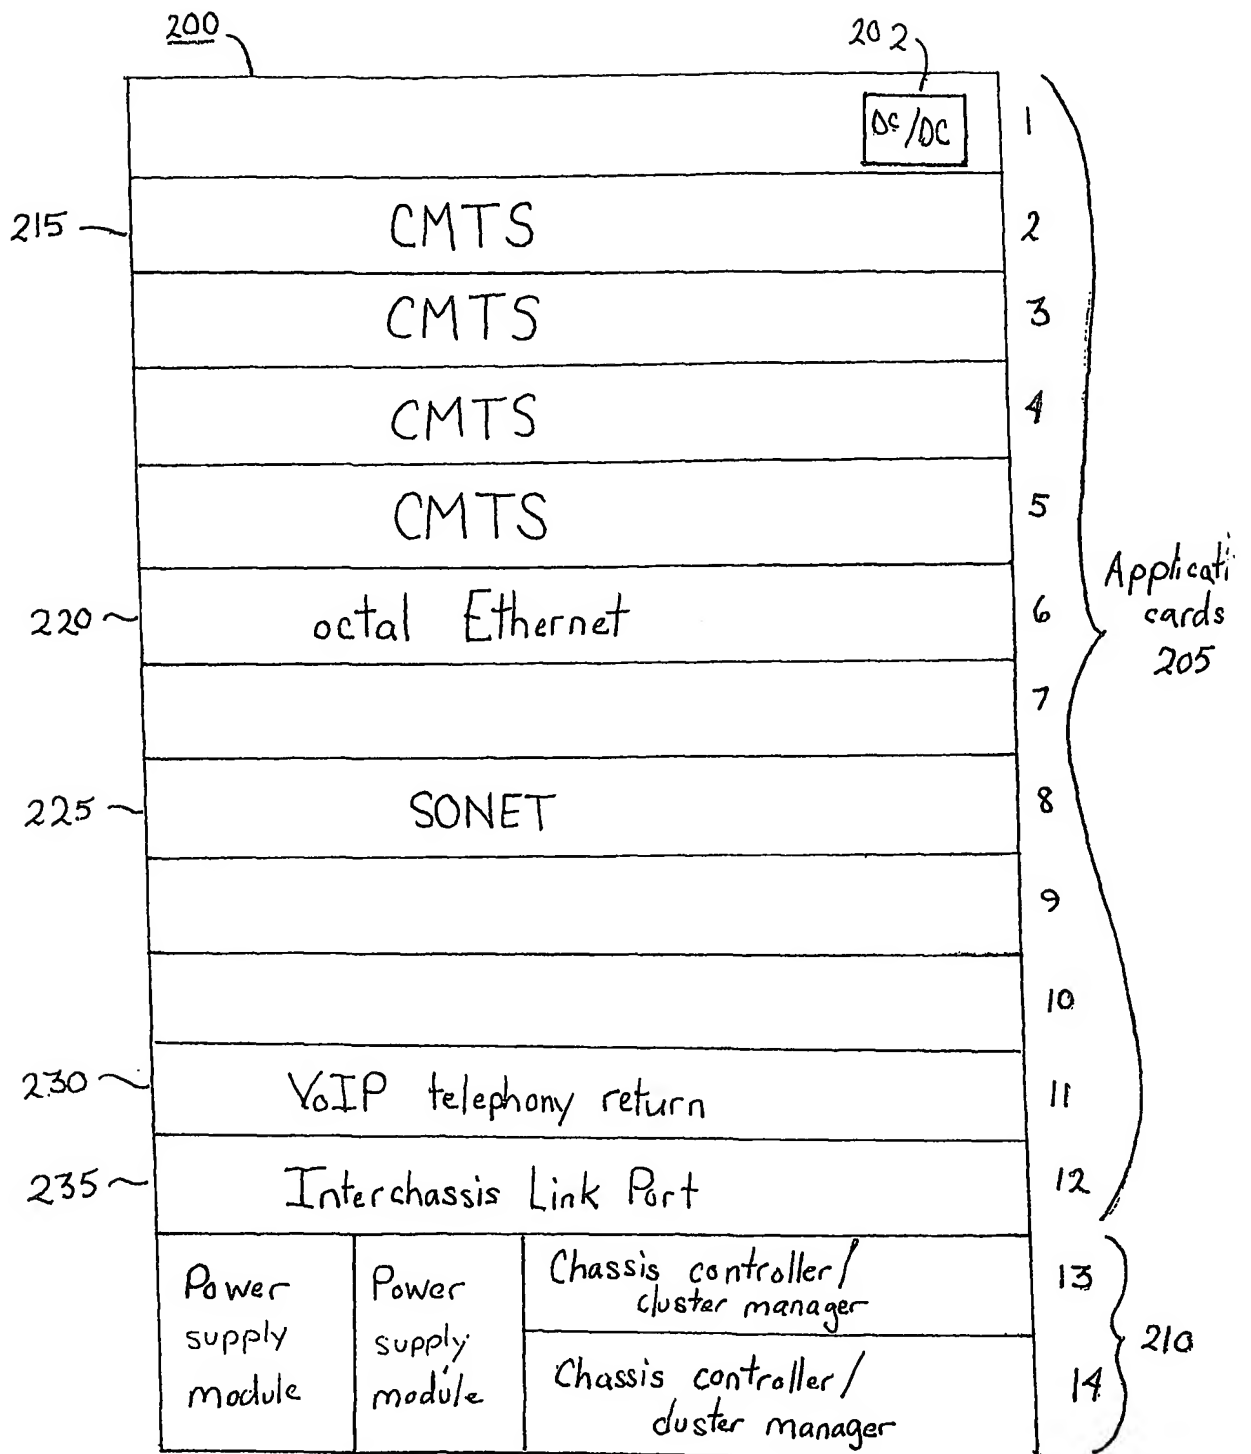 200
202
DC/DC
1
215
CMTS
2
CMTS
3
CMTS
4
CMTS
5
220
octal Ethernet
6
Applicati
cards
205
7
225
SONET
8
9
10
230
VoIP telephony return
11
235
Interchassis Link Port
12
Power
supply
module
Power
supply
module
Chassis controller/
cluster manager
13
Chassis controller/
cluster manager
14
210